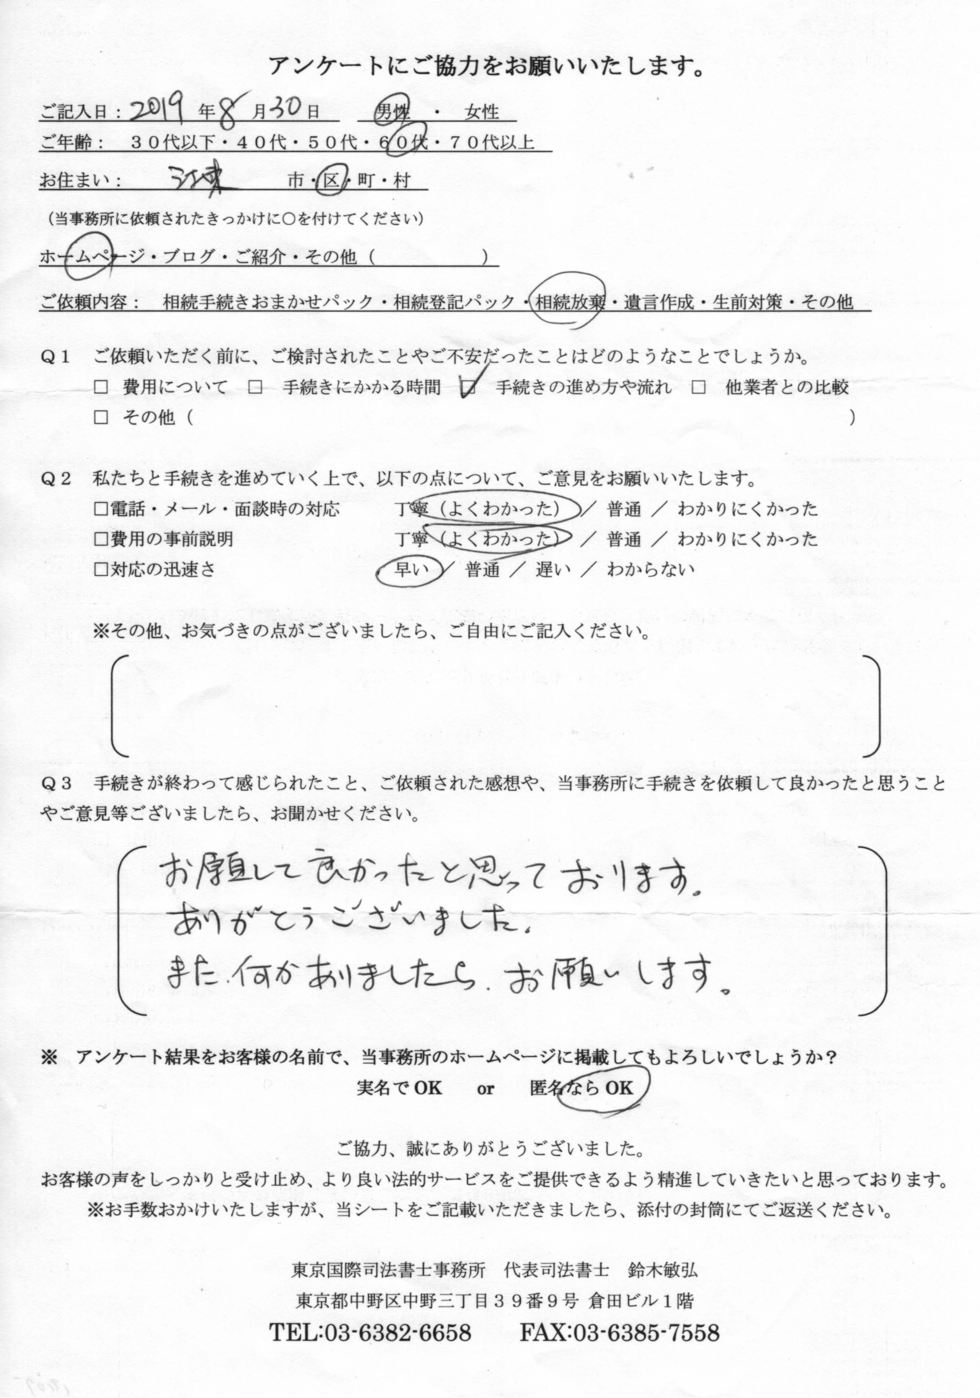 アンケートにご協力をお願いいたします。
ご記入日：2019年8月30日　男性　・　女性
ご年齢：　３０代以下・４０代・５０代・６０代・７０代以上
お住まい：　江東　市・区・町・村
（当事務所に依頼されたきっかけに○を付けてください）
ホームページ・ブログ・ご紹介・その他（　　　　　　）
ご依頼内容：　相続手続きおまかせパック・相続登記パック・相続放棄・遺言作成・生前対策・その他
Ｑ１　ご依頼いただく前に、ご検討されたことやご不安だったことはどのようなことでしょうか。
□　費用について　□　手続きにかかる時間　☑　手続きの進め方や流れ　□　他業者との比較
□　その他（　　　　　　）
Ｑ２　私たちと手続きを進めていく上で、以下の点について、ご意見をお願いいたします。
□電話・メール・面談時の対応　丁寧（よくわかった）／ 普通 ／ わかりにくかった
□費用の事前説明　丁寧（よくわかった）／ 普通 ／ わかりにくかった
□対応の迅速さ　早い ／ 普通 ／ 遅い ／ わからない
※その他、お気づきの点がございましたら、ご自由にご記入ください。
Ｑ３　手続きが終わって感じられたこと、ご依頼された感想や、当事務所に手続きを依頼して良かったと思うこと
やご意見等ございましたら、お聞かせください。
お願して良かったと思っております。
ありがとうございました。
また、何かありましたら、お願いします。
※　アンケート結果をお客様の名前で、当事務所のホームページに掲載してもよろしいでしょうか？
実名で OK　or　匿名なら OK
ご協力、誠にありがとうございました。
お客様の声をしっかりと受け止め、より良い法的サービスをご提供できるよう精進していきたいと思っております。
※お手数おかけいたしますが、当シートをご記載いただきましたら、添付の封筒にてご返送ください。
東京国際司法書士事務所　代表司法書士　鈴木敏弘
東京都中野区中野三丁目３９番９号 倉田ビル１階
TEL:03-6382-6658　FAX:03-6385-7558